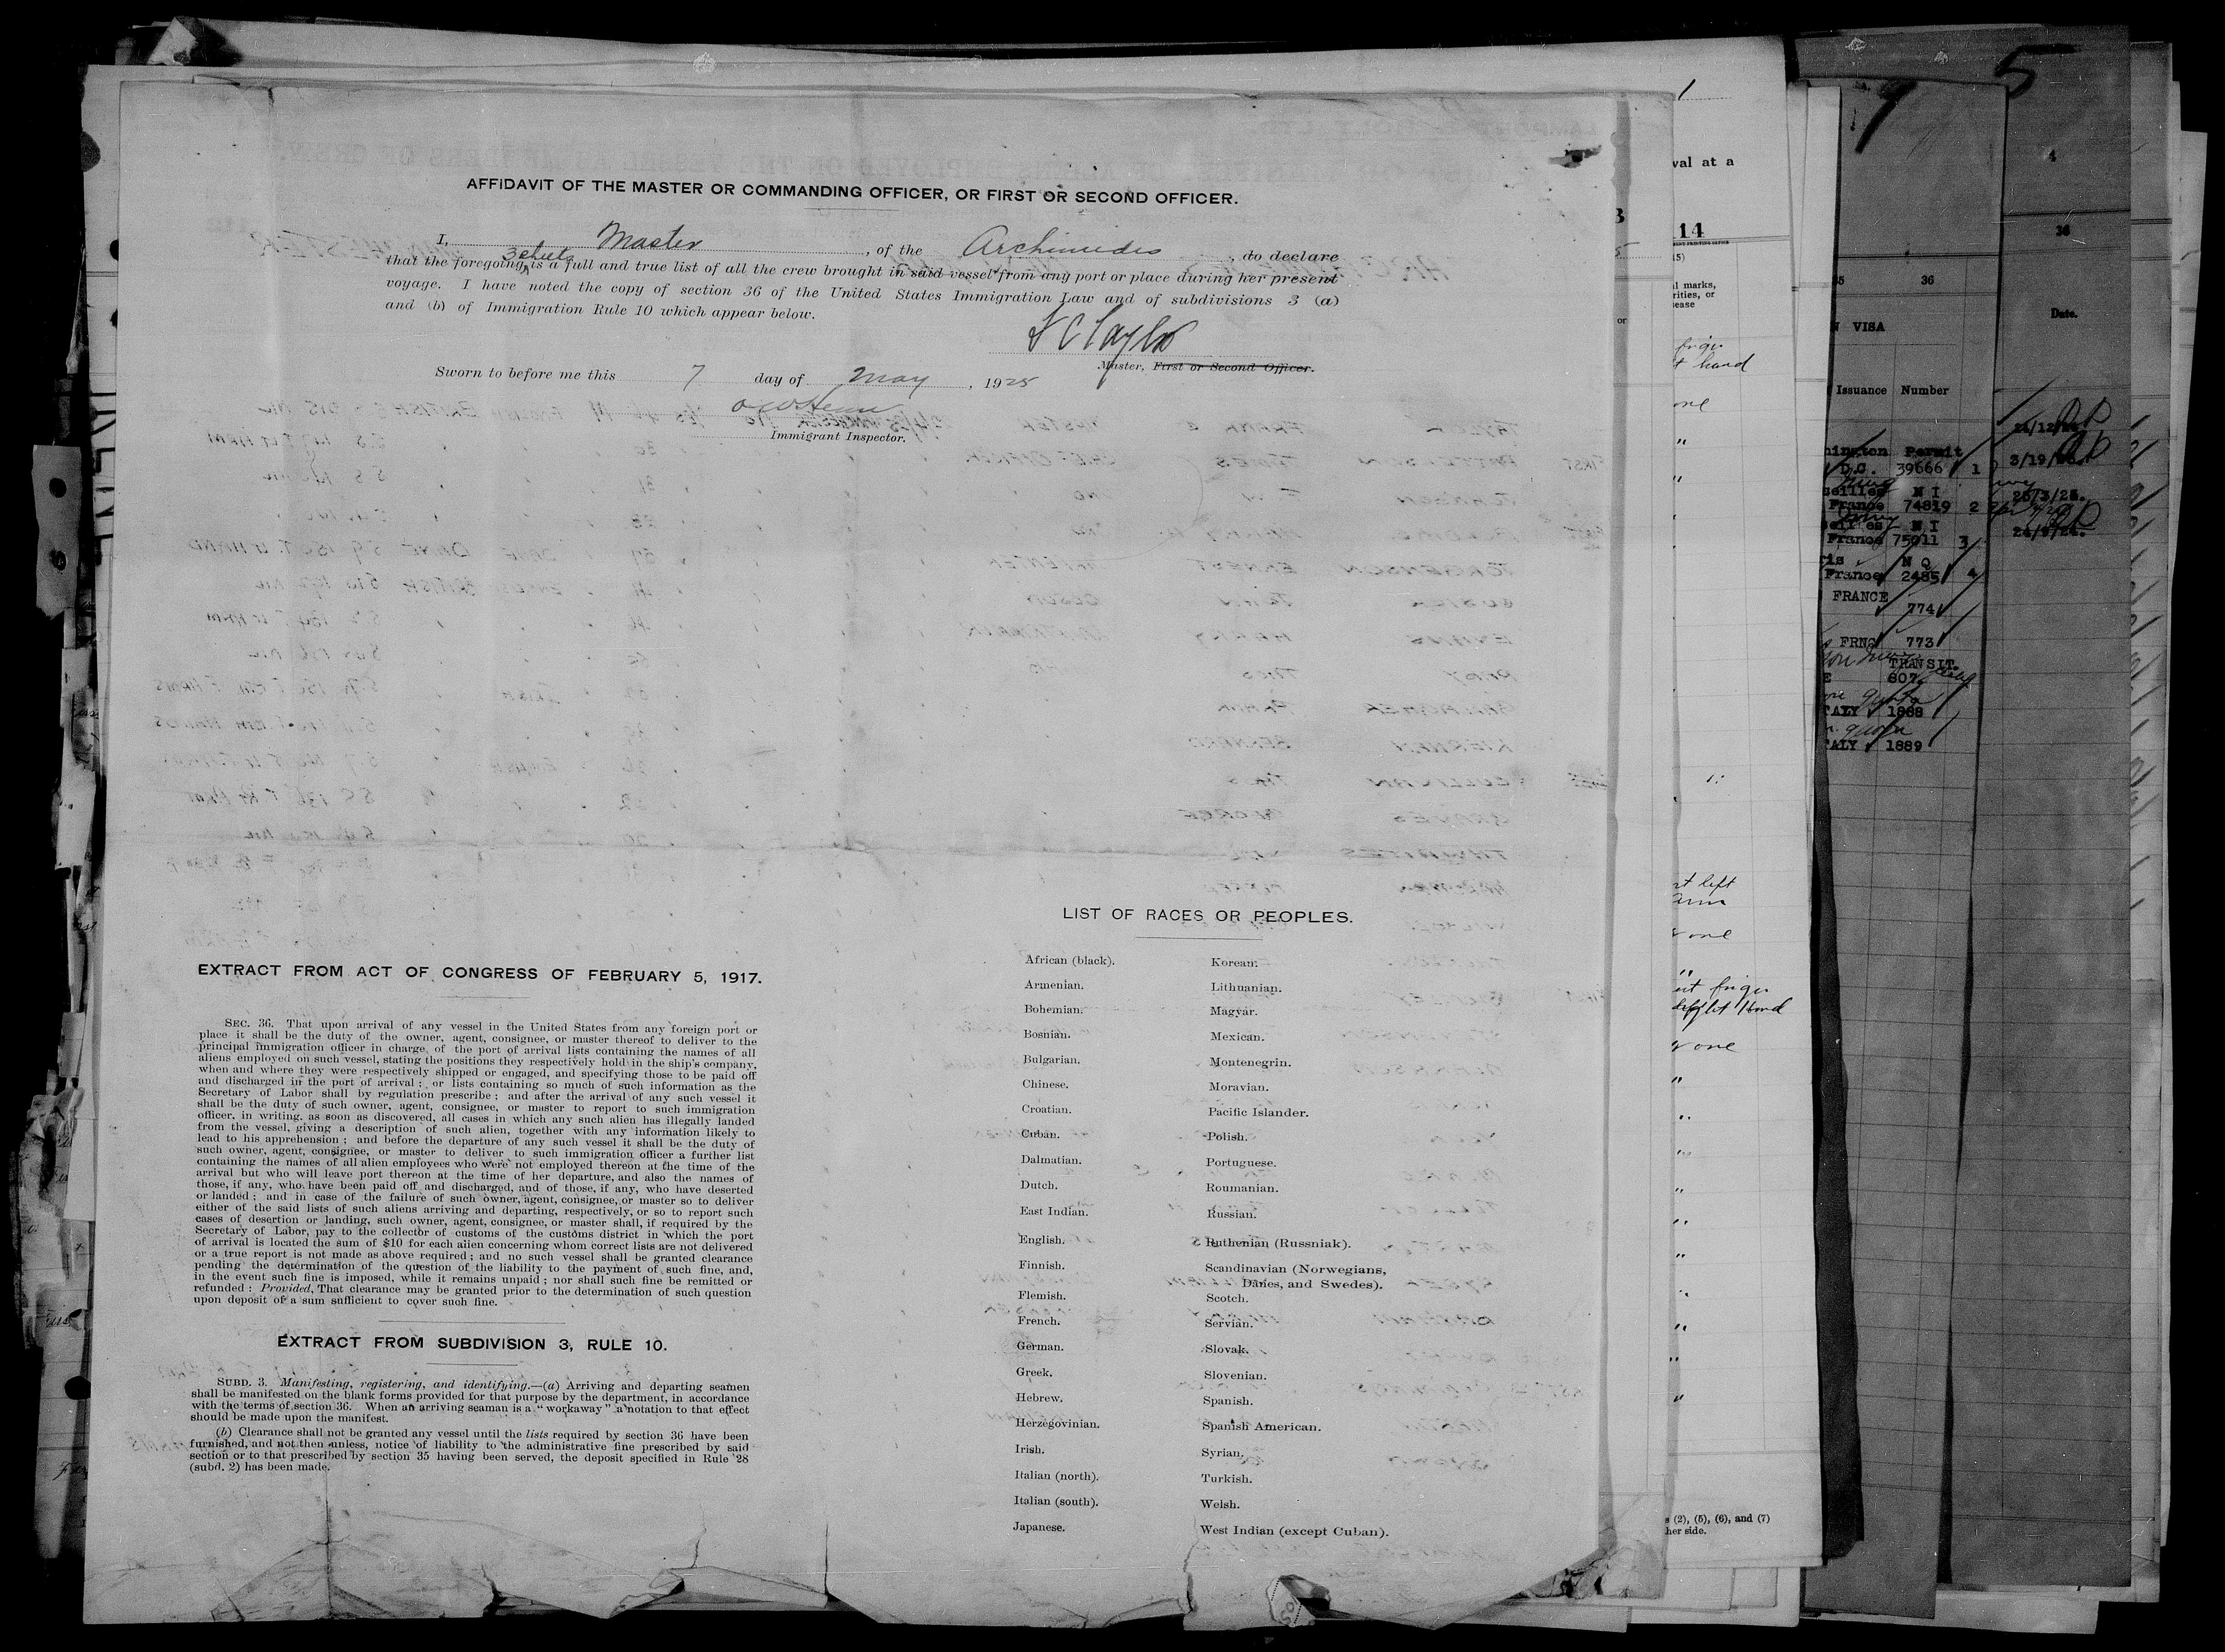 AFFIDAVIT OF THE MASTER OR COMMANDING OFFICER, OR FIRST OR SECOND OFFICER.
I, Master, of the Archimedes, do declare
3 sheets
that the foregoing is a full and true list of all the crew brought in said vessel from any port or place during her present
voyage. I have noted the copy of section 36 of the United States Immigration Law and of subdivisions 3 (a)
and (b) of Immigration Rule 10 which appear below.
F C Taylor
Master, First or Second Officer.
Sworn to before me this 7 day of May, 1925
Immigrant Inspector.
EXTRACT FROM ACT OF CONGRESS OF FEBRUARY 5, 1917.
SEC. 36. That upon arrival of any vessel in the United States from any foreign port or
place it shall be the duty of the owner, agent, consignee, or master thereof to deliver to the
principal immigration officer in charge of the port of arrival lists containing the names of all
aliens employed on such vessel, stating the positions they respectively hold in the ship's company,
when and where they were respectively shipped or engaged, and specifying those to be paid off
and discharged in the port of arrival; or lists containing so much of such information as the
Secretary of Labor shall by regulation prescribe; and after the arrival of any such vessel it
shall be the duty of such owner, agent, consignee, or master to report to such immigration
officer, in writing, as soon as discovered, all cases in which any such alien has illegally landed
from the vessel, giving a description of such alien, together with any information likely to
lead to his apprehension; and before the departure of any such vessel it shall be the duty of
such owner, agent, consignee, or master to deliver to such immigration officer a further list
containing the names of all alien employees who were not employed thereon at the time of the
arrival but who will leave port thereon at the time of her departure, and also the names of
those, if any, who have been paid off and discharged, and of those, if any, who have deserted
or landed; and in case of the failure of such owner, agent, consignee, or master so to deliver
either of the said lists of such aliens arriving and departing, respectively, or so to report such
cases of desertion or landing, such owner, agent, consignee, or master shall, if required by the
Secretary of Labor, pay to the collector of customs of the customs district in which the port
of arrival is located the sum of $10 for each alien concerning whom correct lists are not delivered
or a true report is not made as above required; and no such vessel shall be granted clearance
pending the determination of the question of the liability to the payment of such fine, and,
in the event such fine is imposed, while it remains unpaid; nor shall such fine be remitted or
refunded: Provided, That clearance may be granted prior to the determination of such question
upon deposit of a sum sufficient to cover such fine.
EXTRACT FROM SUBDIVISION 3, RULE 10.
SUBD. 3. Manifesting, registering, and identifying.—(a) Arriving and departing seamen
shall be manifested on the blank forms provided for that purpose by the department, in accordance
with the terms of section 36. When an arriving seaman is a "workaway" a notation to that effect
should be made upon the manifest.
(b) Clearance shall not be granted any vessel until the lists required by section 36 have been
furnished, and not then unless, notice of liability to the administrative fine prescribed by said
section or to that prescribed by section 35 having been served, the deposit specified in Rule 28
(subd. 2) has been made.
LIST OF RACES OR PEOPLES.
African (black).
Armenian.
Bohemian.
Bosnian.
Bulgarian.
Chinese.
Croatian.
Cuban.
Dalmatian.
Dutch.
East Indian.
English.
Finnish.
Flemish.
French.
German.
Greek.
Hebrew.
Herzegovinian.
Irish.
Italian (north).
Italian (south).
Japanese.
Korean.
Lithuanian.
Magyar.
Mexican.
Montenegrin.
Moravian.
Pacific Islander.
Polish.
Portuguese.
Roumanian.
Russian.
Ruthenian (Russniak).
Scandinavian (Norwegians,
Danes, and Swedes).
Scotch.
Servian.
Slovak.
Slovenian.
Spanish.
Spanish American.
Syrian.
Turkish.
Welsh.
West Indian (except Cuban).
val at a
14
l marks,
rities, or
sease
or
t hand
rt left
arm
(2), (5), (6), and (7)
her side.
5
4
36
36
Date.
VISA
Issuance Number
Permit
D.C. 39666 1
3/19/25.
N I
France 74819 2
N I
France 75011 3
N Q
France 2485 4
FRANCE
774
773
TRANSIT.
607
TALY 1888
TALY 1889